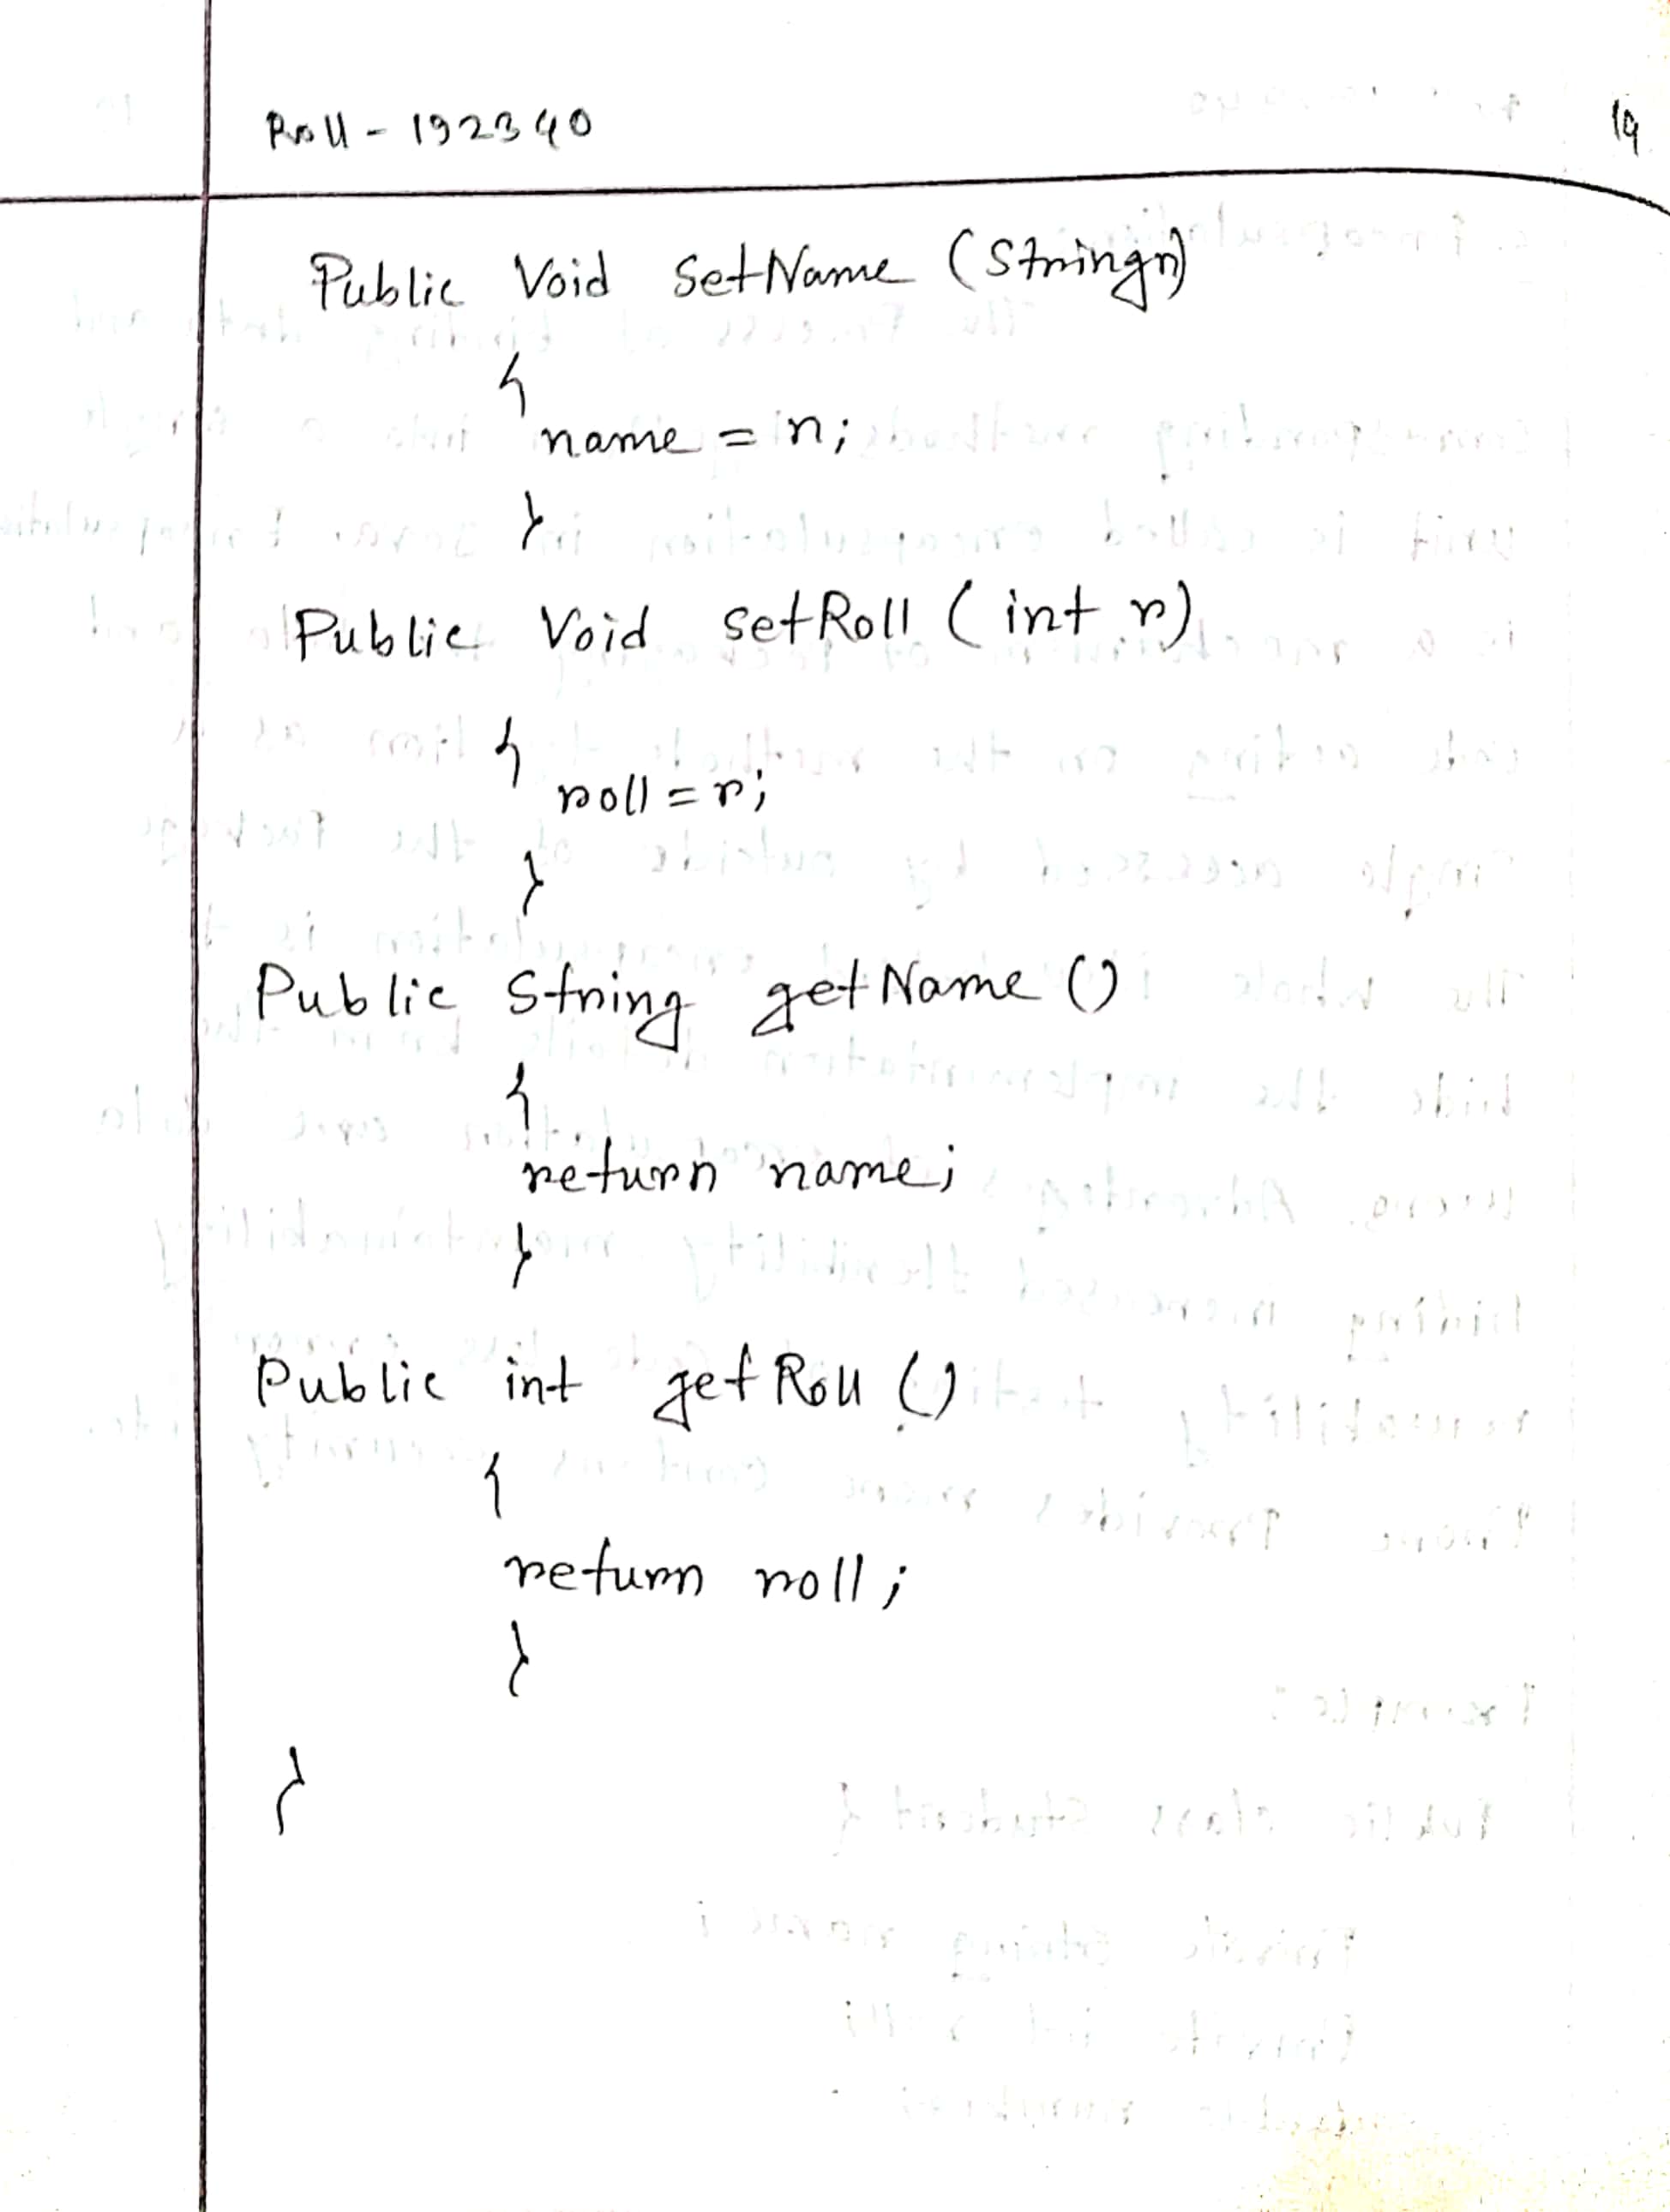 Roll - 192340
19
Public Void SetName (String n)
{
name = n;
}
Public Void setRoll ( int r)
{
roll = r;
}
Public String getName ()
{
return name;
}
Public int getRoll ()
{
return roll;
}
}